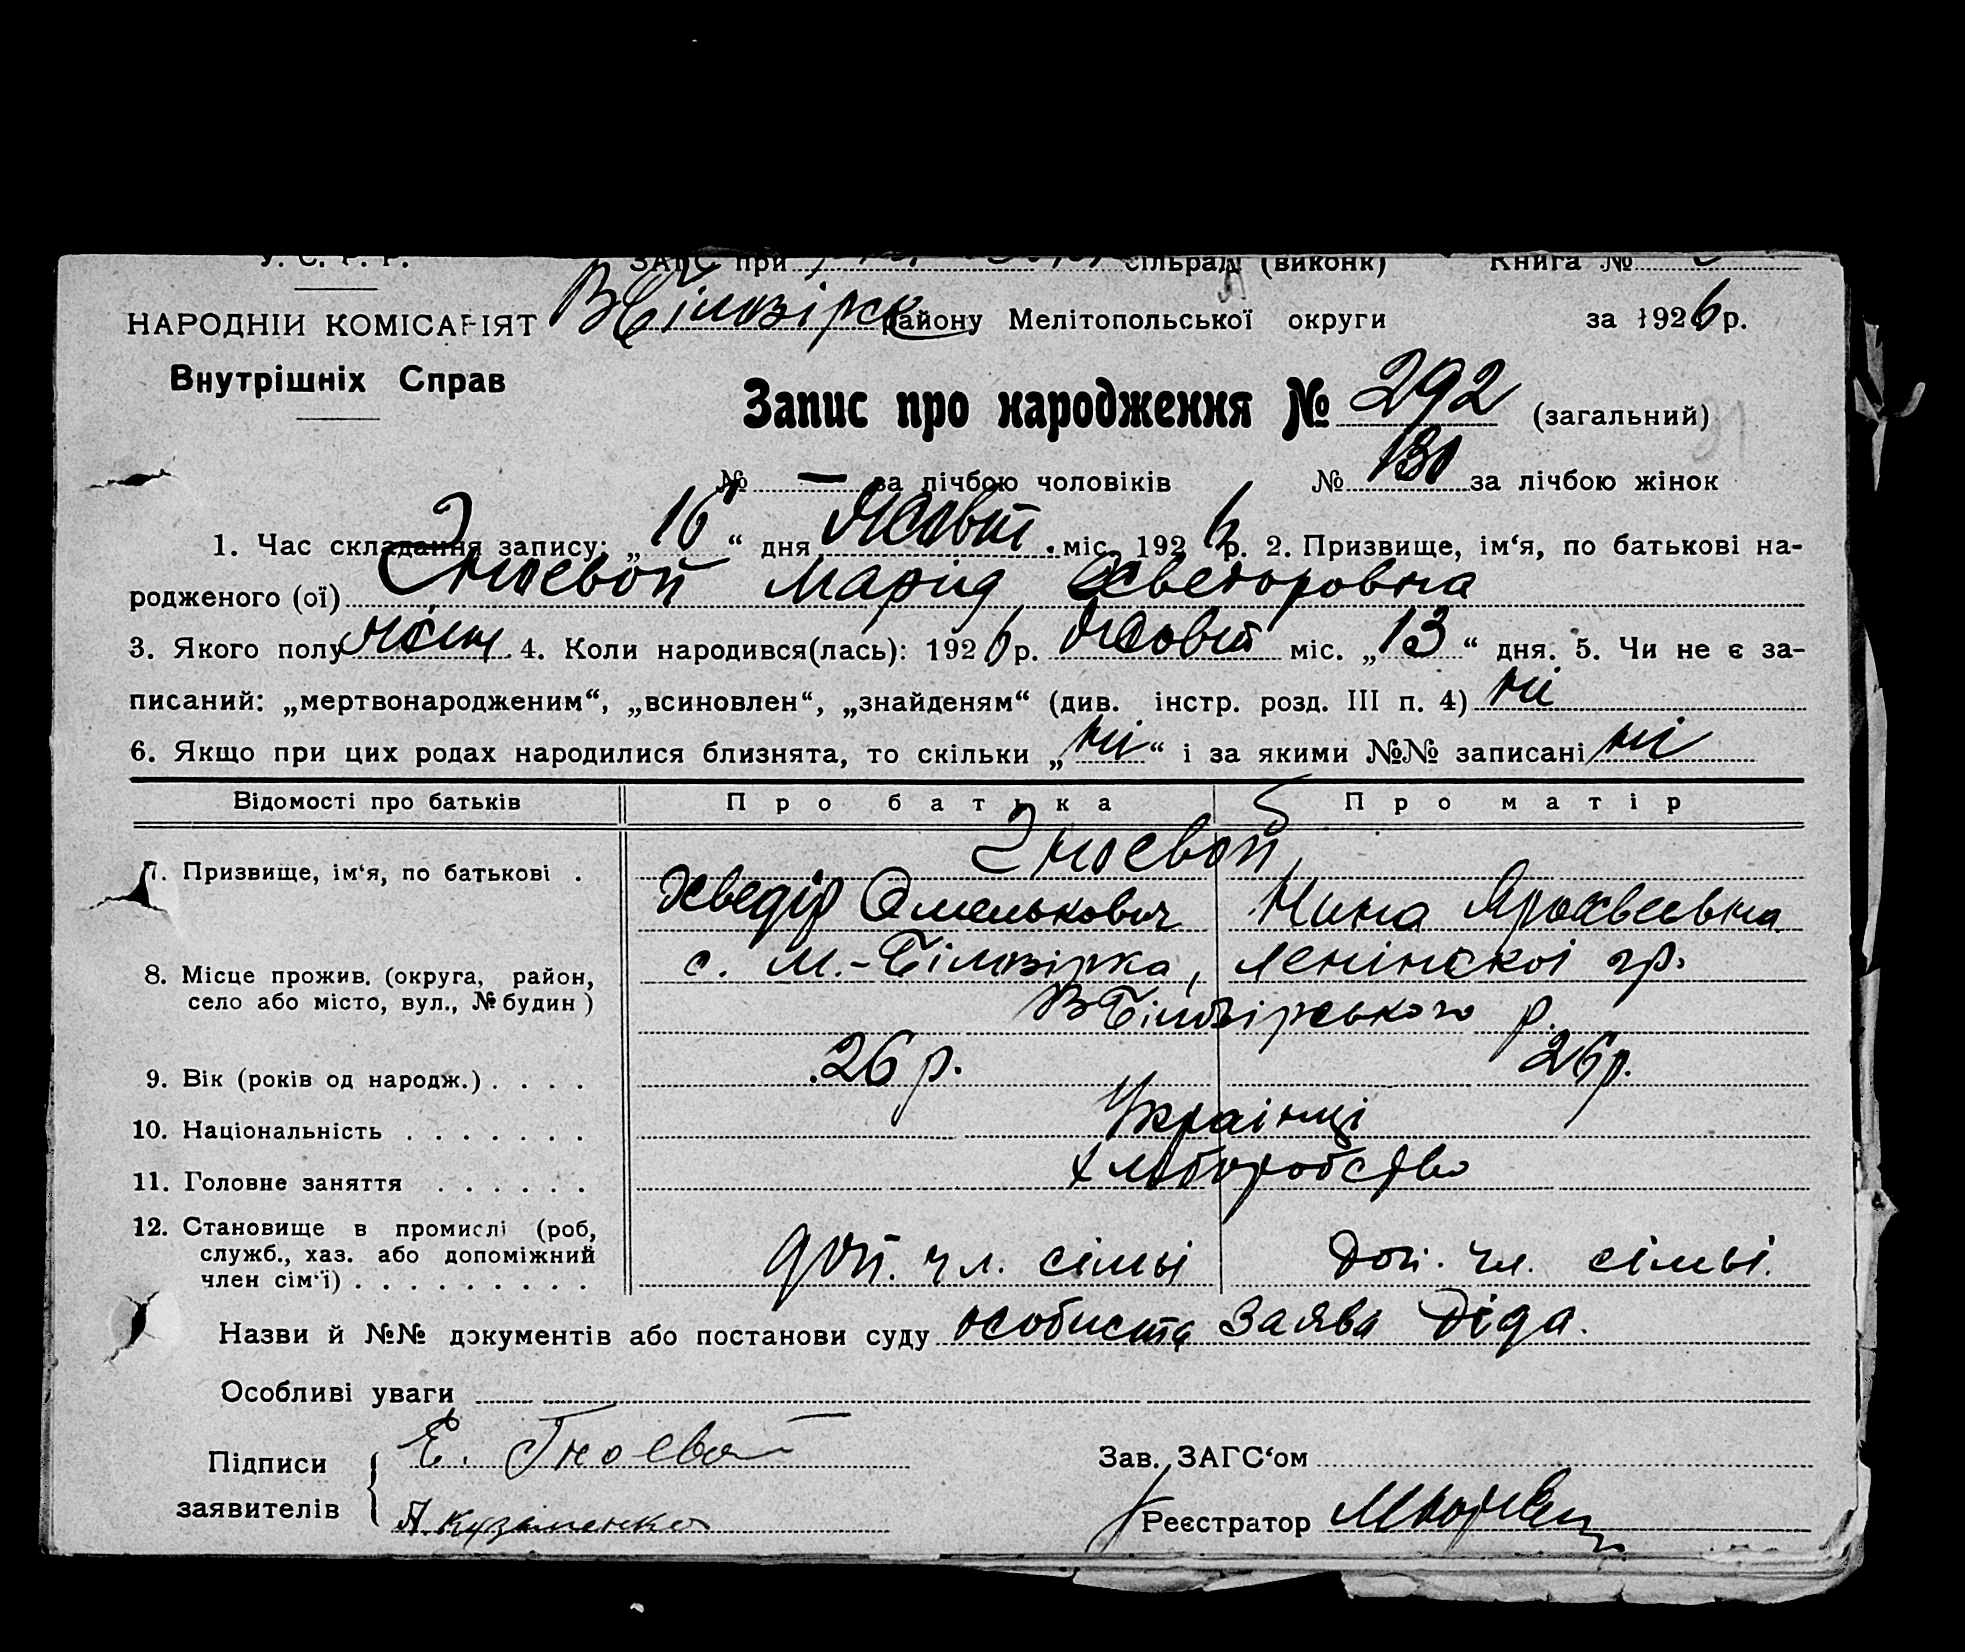 У. С. Р. Р. ЗАГС при сільраді (виконк) Книга №
В Білозірськ району Мелітопольської округи за 1926 р.
НАРОДНІЙ КОМІСАРІЯТ
Внутрішніх Справ
Запис про народження № 292 (загальний)
№ — за лічбою чоловіків № 130 за лічбою жінок
1. Час складання запису: „16“ дня Жовт. міс. 1926 р. 2. Призвище, ім‘я, по батькові на-
родженого (ої) Гноєвой Марія Хведоровна
3. Якого полу жін 4. Коли народився(лась): 1926 р. Жовт міс. „13“ дня. 5. Чи не є за-
писаний: „мертвонародженим“, „всиновлен“, „знайденям“ (див. інстр. розд. III п. 4) ні
6. Якщо при цих родах народилися близнята, то скільки „ні“ і за якими №№ записані ні
Відомості про батьків Про батька Про матір
Гноєвой
7. Призвище, ім‘я, по батькові .
Хведір Омелькович Нина
8. Місце прожив. (округа, район, с. М.-Білозірка, Ленінскоі гр.
село або місто, вул., № будин) В Білозірського р.
9. Вік (років од народж.) . . . . 26 р. 26 р.
10. Національність . . . . . . . Украінці
11. Головне заняття . . . . . . хліборобство
12. Становище в промислі (роб,
служб., хаз. або допоміжний доп. чл. сімьі доп. чл. сімьі.
член сім‘ї) . . . . . . . . .
Назви й №№ документів або постанови суду особиста заява Діда.
Особливі уваги
Підписи Е. Гноевой Зав. ЗАГС‘ом
заявителів А. Кузьменко Реєстратор